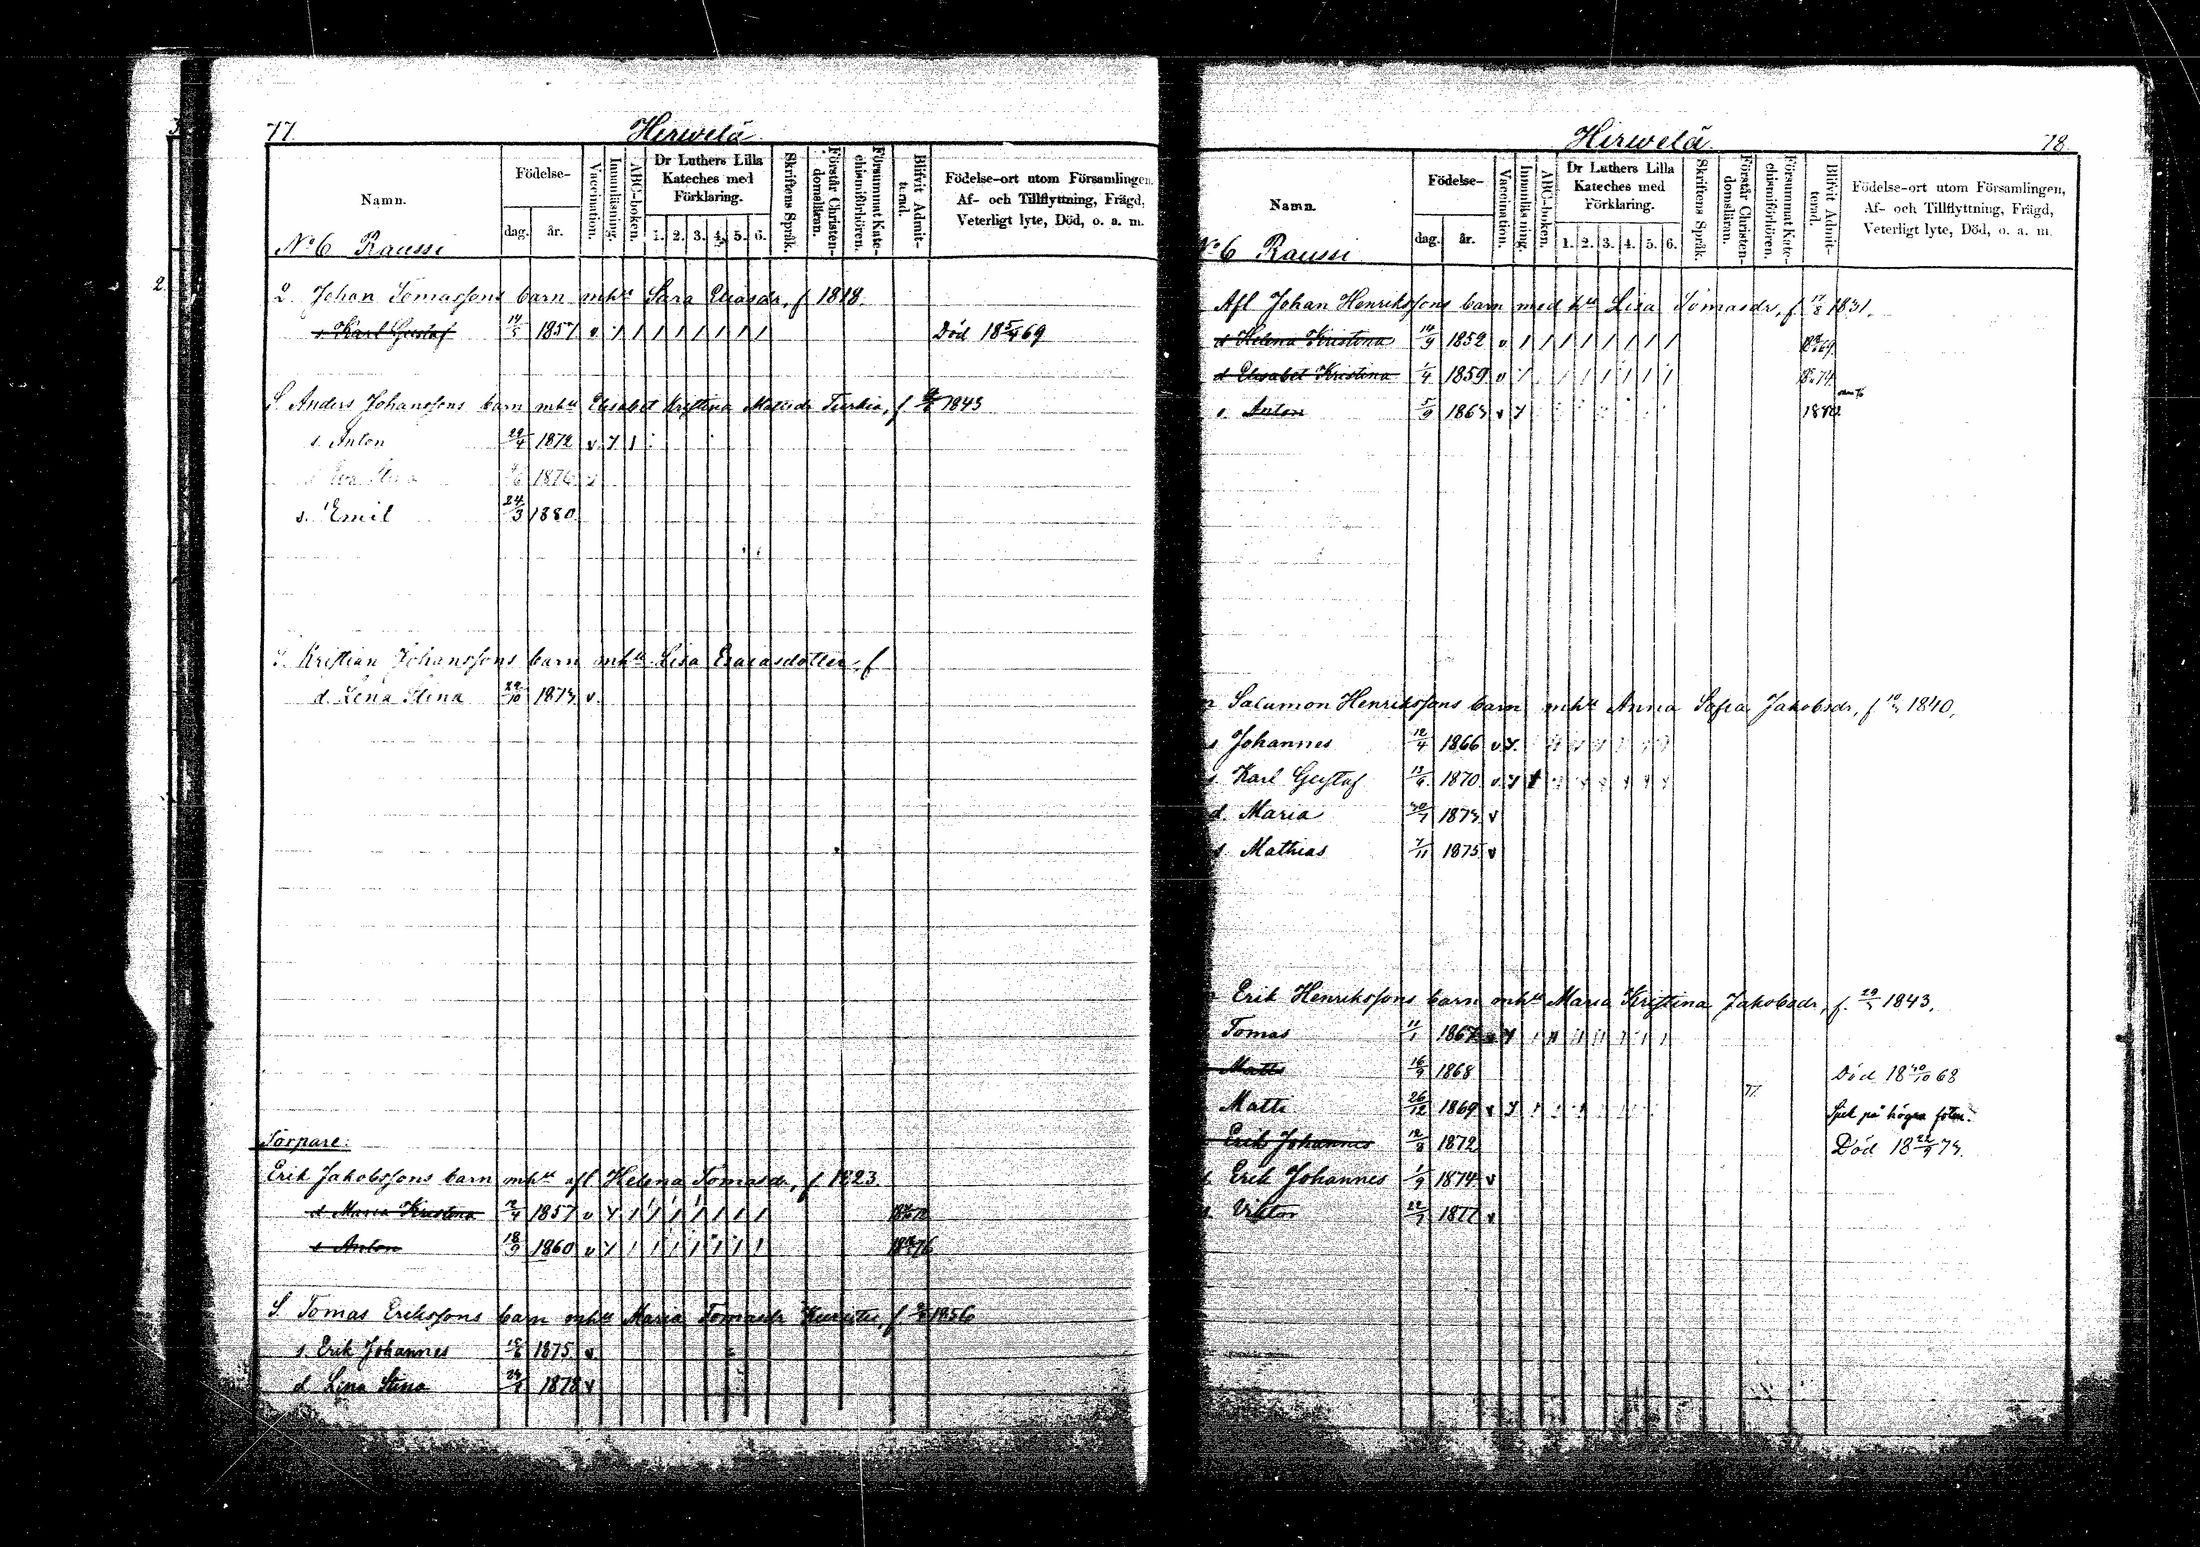 77.
Hirwelä
Namn.
Födelse-
dag.
år.
Vaccination.
Innanläsning.
ABC-boken.
Dr Luthers Lilla Kateches med Förklaring.
1. 2. 3. 4. 5. 6.
Skriftens Språk.
Förstår Christendomsläran.
Försummat Katechismiförhören.
Blifvit Admitterad.
Födelse-ort utom Församlingen,
Af- och Tillflyttning, Frägd,
Veterligt lyte, Död, o. a. m.
No 6 Raussi
2. Johan Tomassons barn mhu Sara Eliasdr, f 1818
s Karl Gustaf 1857 v Död 18 69
S. Anders Johanssons barn mhu Elisabet Kristina Matsdr Turkia, f 1843
s. Anton 22/4 1872 v
1876
s. Emil 24/3 1880
S. Kristian Johanssons barn mhu Lisa Esaiasdotter, f
d. Lena Stina 29/10 1873 v.
Torpare:
Erik Jakobssons barn mhu afl Helena Tomasdr, f 1823
d Maria Kristina 12/4 1857 v
s Anton 18/9 1860 v
S. Tomas Erikssons barn mhu Maria Tomasdr f 1856
s. Erik Johannes 1875 v
d Lina Stina 1878 v
Hirwelä
78
Namn.
Födelse-
dag.
år.
Vaccination.
Innanläsning.
ABC-boken.
Dr Luthers Lilla Kateches med Förklaring.
1. 2. 3. 4. 5. 6.
Skriftens Språk.
Förstår Christendomsläran.
Försummat Katechismiförhören.
Blifvit Admitterad.
Födelse-ort utom Församlingen,
Af- och Tillflyttning, Frägd,
Veterligt lyte, Död, o. a. m.
No 6 Raussi
Afl Johan Henrikssons barn med hu Lisa Tomasdr, f 17/8 1831.
d Helena Kristina 14/9 1852 v
d Elisabet Kristina 1/4 1859 v
s. Anton 5/9 1863 v
Salumon Henrikssons barn mhu Anna Sofia Jakobsdr, f 1840.
s Johannes 12/4 1866 v
s. Karl Gustaf 13/6 1870 v
d. Maria 30/7 1873 v
s Mathias 7/11 1875 v
Erik Henrikssons barn mhu Maria Kristina Jakobsdr, f. 1843.
Tomas 11/1 1867
Matts 16/9 1868 Död 18 30/10 68
Matts 26/12 1869 v på högra foten.
Erik Johannes 12/8 1872 Död 18 22/9 73.
Erik Johannes 1/9 1874 v
s. Viktor 22/7 1877 v